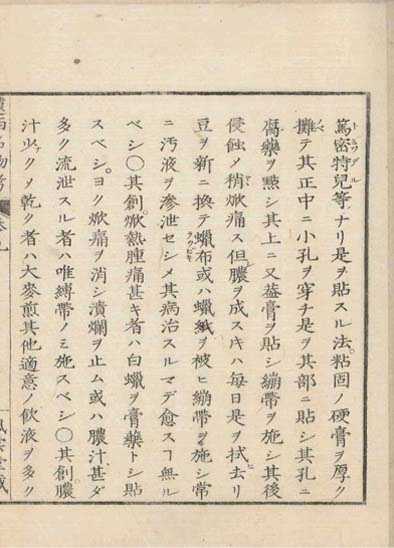 篤密特兒等ナリ是ヲ貼スル法。粘固ノ硬膏ヲ厚ク
攤テ其正中ニ小孔ヲ穿チ是ヲ其部ニ貼シ其孔ニ
腐藥ヲ點シ其上ニ又蓋膏ヲ貼シ繃帶ヲ施シ其後
侵蝕メ稍焮痛ス但膿ヲ成ス片ハ每日是ヲ拭去リ
豆ヲ新ニ換テ蠟布或ハ蠟紙ヲ被ヒ繃帶ヲ施シ常
ニ汚液ヲ滲泄セシメ其病治スルマデ愈スヿ無ル
ベシ〇其創。焮熱腫痛甚キ者ハ白蠟ヲ膏藥トシ貼
スベシ。ヨク焮痛ヲ消シ潰爛ヲ止ム或ハ膿汁甚ダ
多ク流泄スル者ハ唯縛帶ノミ施スベシ〇其創。膿
汁少クメ乾ク者ハ大麥煎其他適意ノ飮液ヲ多ク